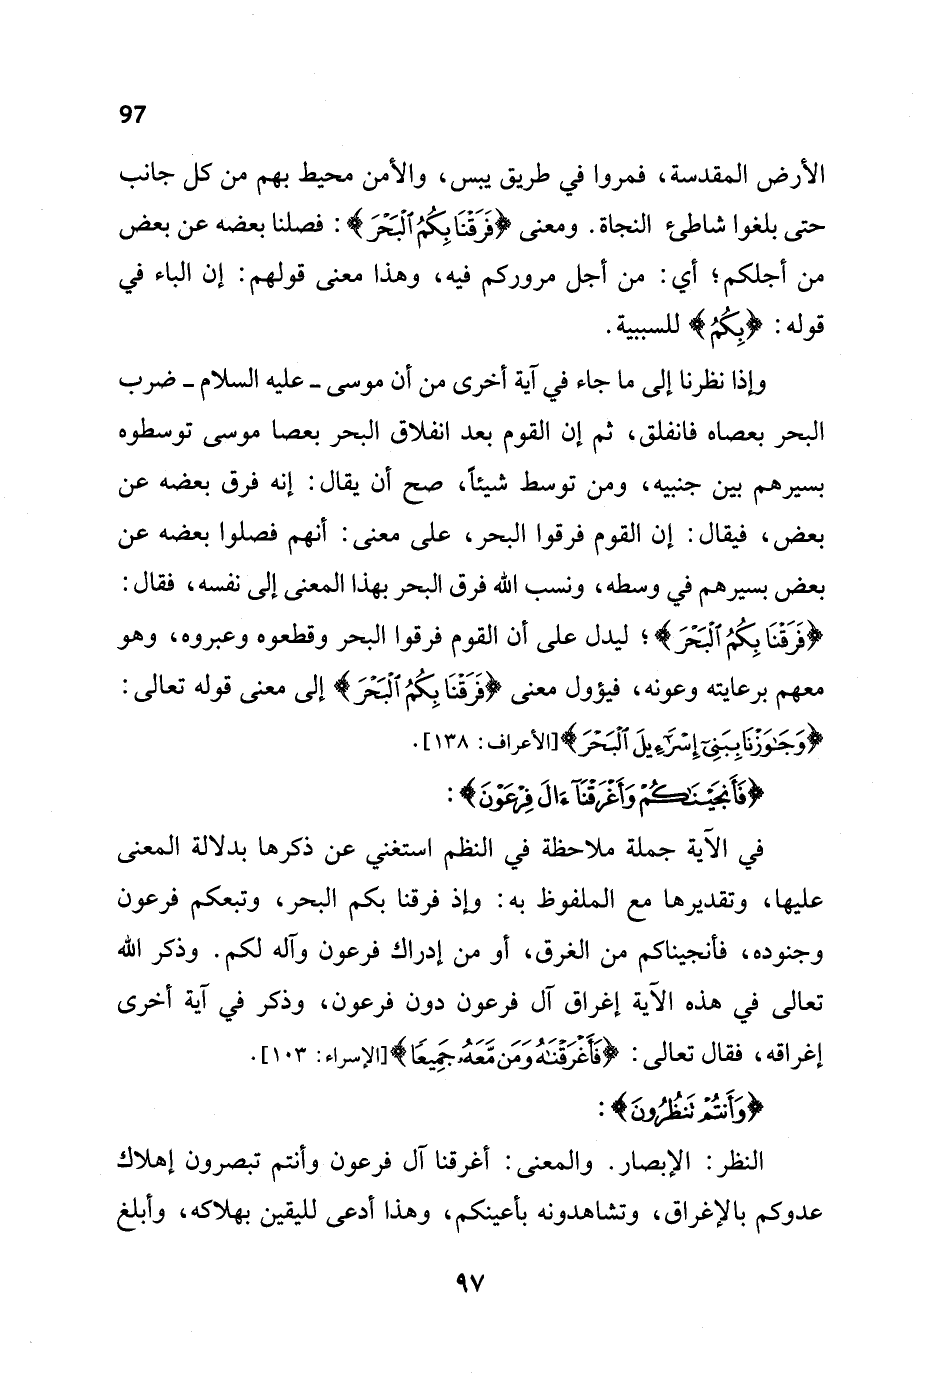 97
الأرض المقدسة، فمروا في طريق يبس، والأمن محيط بهم من كل جانب
حتى بلغوا شاطئ النجاة. ومعنى ﴿فَرَقْنَا بِكُمُ ٱلْبَحْرَ﴾: فصلنا بعضه عن بعض
من أجلكم؛ أي: من أجل مروركم فيه، وهذا معنى قولهم: إن الباء في
قوله: ﴿بِكُمُ﴾ للسببية.
وإذا نظرنا إلى ما جاء في آية أخرى من أن موسى ـ عليه السلام ـ ضرب
البحر بعصاه فانفلق، ثم إن القوم بعد انفلاق البحر بعصا موسى توسطوه
بسيرهم بين جنبيه، ومن توسط شيئاً، صح أن يقال: إنه فرق بعضه عن
بعض، فيقال: إن القوم فرقوا البحر، على معنى: أنهم فصلوا بعضه عن
بعض بسيرهم في وسطه، ونسب الله فرق البحر بهذا المعنى إلى نفسه، فقال:
﴿فَرَقْنَا بِكُمُ ٱلْبَحْرَ﴾؛ ليدل على أن القوم فرقوا البحر وقطعوه وعبروه، وهو
معهم برعايته وعونه، فيؤول معنى ﴿فَرَقْنَا بِكُمُ ٱلْبَحْرَ﴾ إلى معنى قوله تعالى:
﴿وَجَٰوَزْنَا بِبَنِىٓ إِسْرَٰٓءِيلَ ٱلْبَحْرَ﴾[الأعراف: ١٣٨].
﴿فَأَنجَيْنَٰكُمْ وَأَغْرَقْنَآ ءَالَ فِرْعَوْنَ﴾:
في الآية جملة ملاحظة في النظم استغني عن ذكرها بدلالة المعنى
عليها، وتقديرها مع الملفوظ به: وإذ فرقنا بكم البحر، وتبعكم فرعون
وجنوده، فأنجيناكم من الغرق، أو من إدراك فرعون وآله لكم. وذكر الله
تعالى في هذه الآية إغراق آل فرعون دون فرعون، وذكر في آية أخرى
إغراقه، فقال تعالى: ﴿فَأَغْرَقْنَٰهُ وَمَن مَّعَهُۥ جَمِيعًا﴾[الإسراء: ١٠٣].
﴿وَأَنتُمْ تَنظُرُونَ﴾:
النظر: الإبصار. والمعنى: أغرقنا آل فرعون وأنتم تبصرون إهلاك
عدوكم بالإغراق، وتشاهدونه بأعينكم، وهذا أدعى لليقين بهلاكه، وأبلغ
٩٧